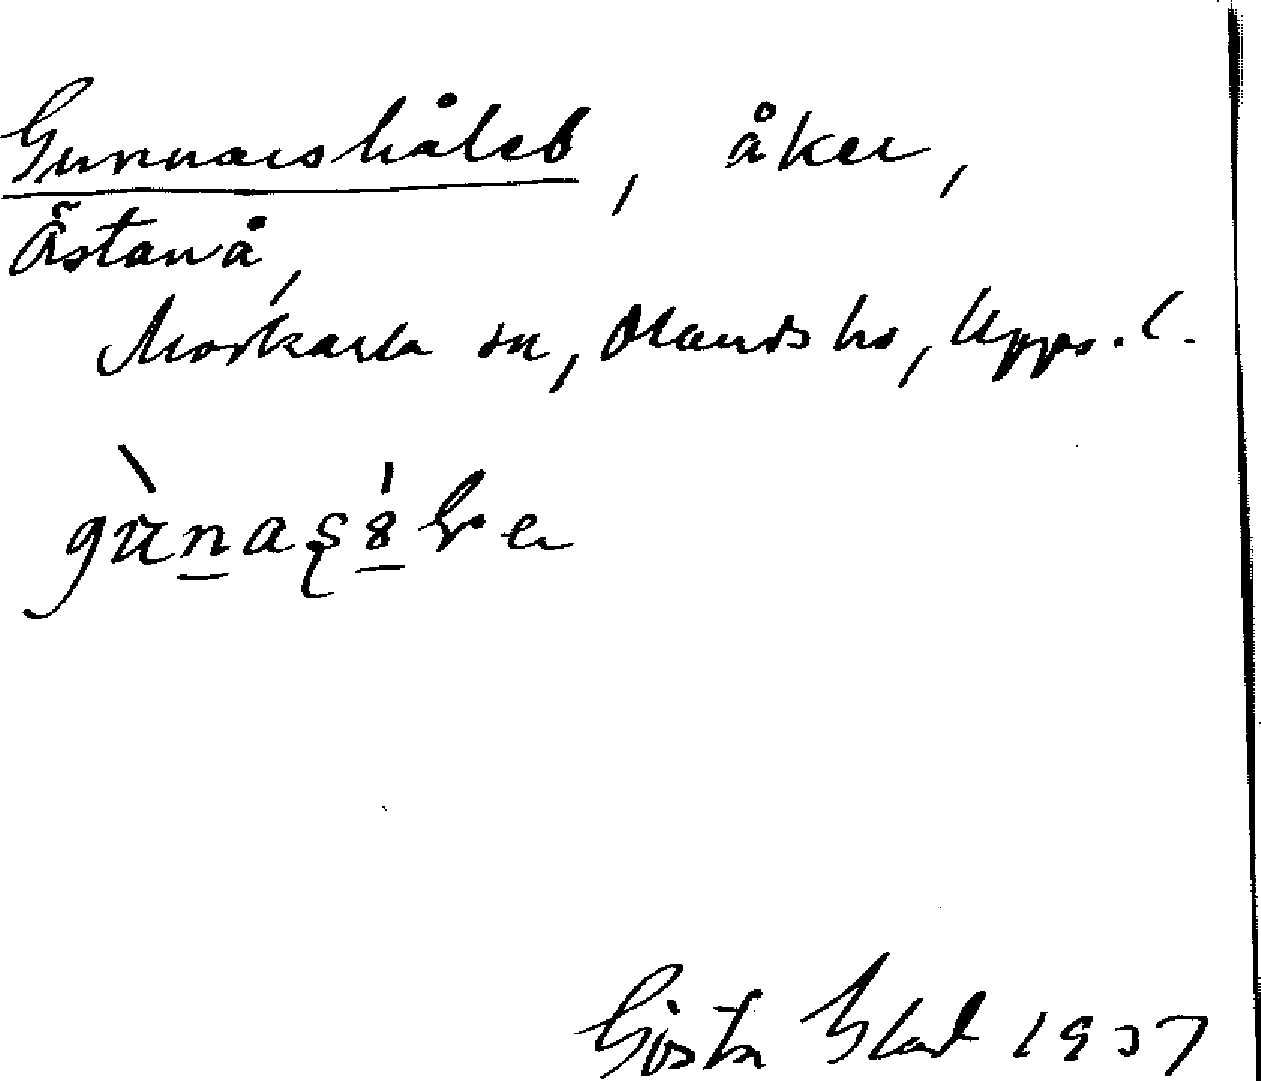 Gunnarshålet, åker,
Östanå,
Morkarla sn, Olands hd, Upps. l.
Gösta Blad 1937